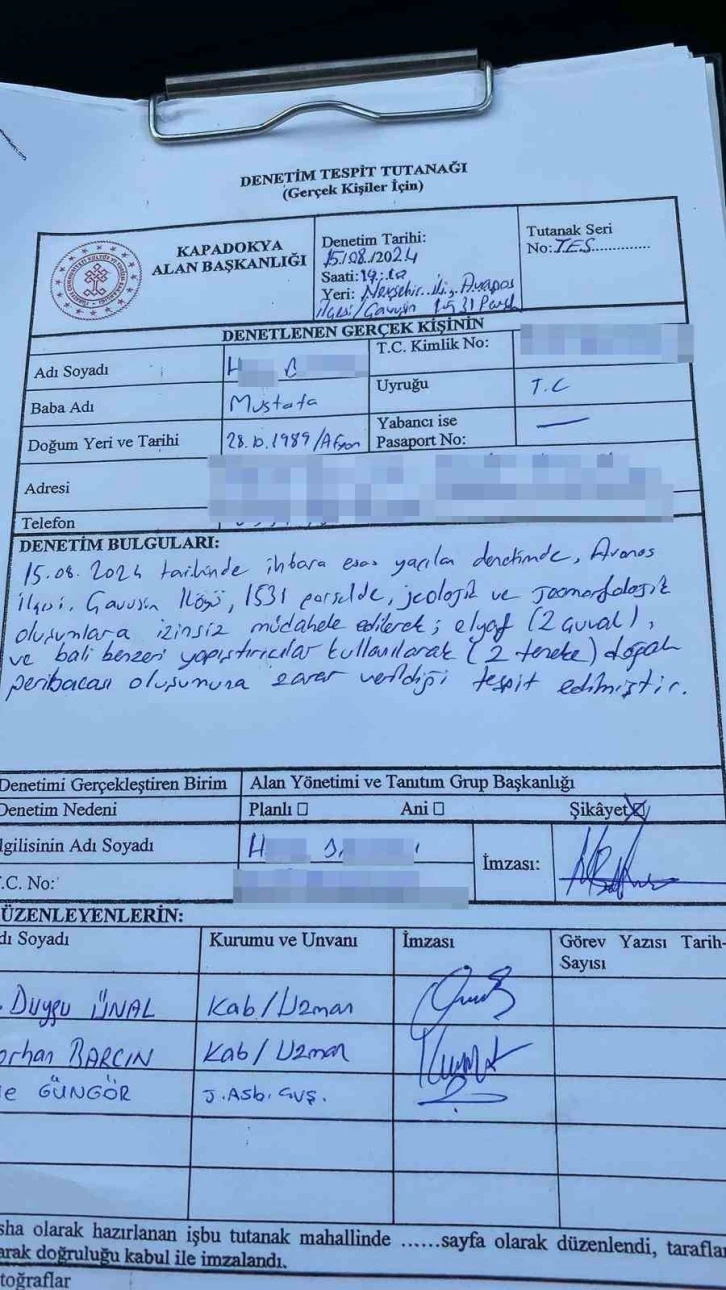 DENETİM TESPİT TUTANAĞI
(Gerçek Kişiler İçin)
KAPADOKYA
ALAN BAŞKANLIĞI
Denetim Tarihi:
15/08/2024
Saati:19:10
Yeri: Nevşehir ili, Avanos
ilçesi/Çavuşin
Tutanak Seri
No:TES.............
DENETLENEN GERÇEK KİŞİNİN
Adı Soyadı
H
T.C. Kimlik No:
Baba Adı
Mustafa
Uyruğu
T.C
Doğum Yeri ve Tarihi
28.10.1989/Afyon
Yabancı ise
Pasaport No:
Adresi
Telefon
DENETİM BULGULARI:
15.08.2024 tarihinde ihbara esas yapılan denetimde, Avanos
ilçesi, Çavuşin Köyü, 1531 parselde, jeolojik ve jeomorfolojik
oluşumlara izinsiz müdahele edilerek; elyaf (2 çuval),
ve bali benzeri yapıştırıcılar kullanılarak (2 teneke) doğal
peribacası oluşumuna zarar verildiği tespit edilmiştir.
Denetimi Gerçekleştiren Birim
Alan Yönetimi ve Tanıtım Grup Başkanlığı
Denetim Nedeni
Planlı □
Ani □
Şikâyet ☒
lgilisinin Adı Soyadı
H
İmzası:
.C. No:
ÜZENLEYENLERİN:
dı Soyadı
Kurumu ve Unvanı
İmzası
Görev Yazısı Tarih-
Sayısı
Duygu ÜNAL
Kab/Uzman
orhan BARÇIN
Kab/Uzman
e GÜNGÖR
J.Asb.Çvş.
sha olarak hazırlanan işbu tutanak mahallinde ......sayfa olarak düzenlendi, tarafla
arak doğruluğu kabul ile imzalandı.
toğraflar